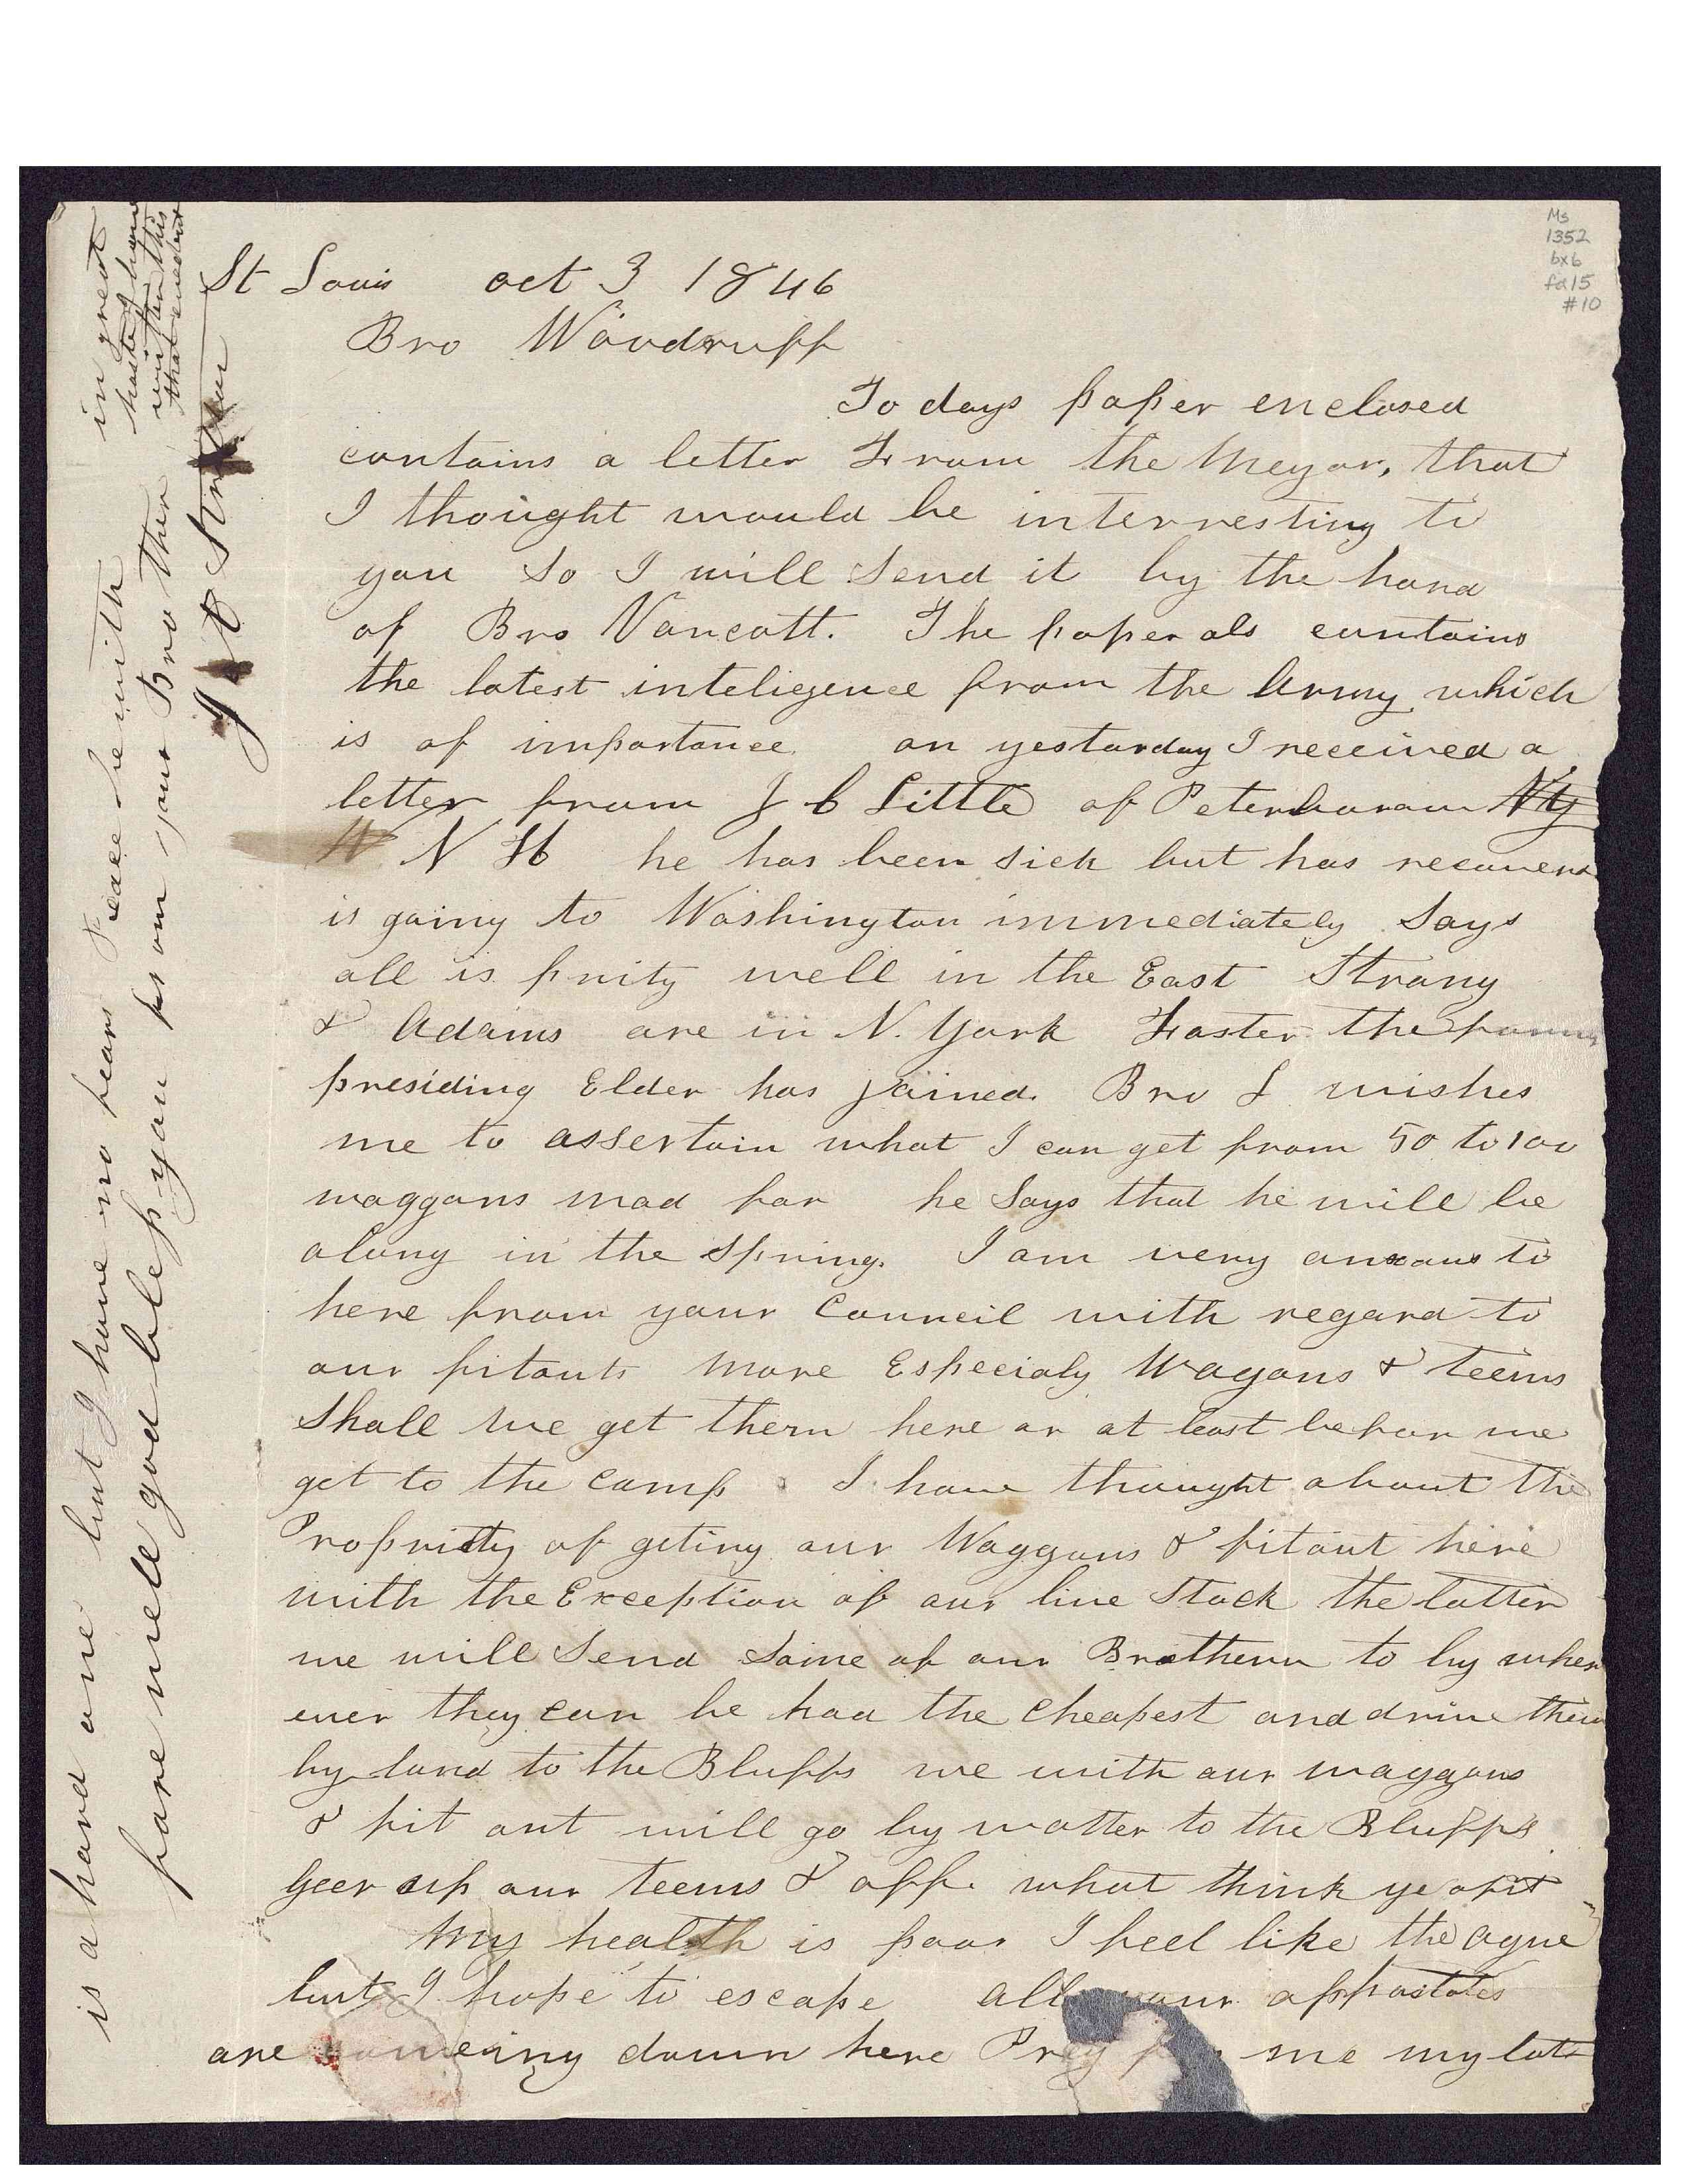 Ms
1352
bx6
fd15
#10
St Louis oct 3 1846
Bro Woodruff
To days paper enclosed
contains a letter From the Meyor, that
I thought would be interresting to
you So I will Send it by the hand
of Bro Vancott. The paper als contains
the latest inteligence from the Army which
is of importance on yestarday I received a
letter from J C Little of Peterboroam NY
N H he has been sick but has recovered
is going to Washington immediately Says
all is prity well in the East Strang
& Adams are in N. York Foster the former
presiding Elder has joined. Bro L wishes
me to assertain what I can get from 50 to 100
waggons mad for he Says that he will be
along in the Spring. I am very anxous to
here from your Council with regard to
our fitouts more Especialy Wagons & teems
Shall we get them here or at least befor we
get to the camp I have thought about the
Propriety of geting our Waggons & fitout here
with the Exception of our live Stock the latter
we will Send Some of our Brothern to by wher
ever they can be had the cheapest and drive them
by land to the Bluffs we with our waggons
& fit out will go by watter to the Bluffs
geer up our teems & off. what think ye of it
My health is poor I feel like the ague
but I hope to escape all your appostates
are comeing down here Prey for me my lot
is a hard one but I have no fears Peace be with
you as am your Brother
fare well god bless
in great
haste I have
written this
that evedent